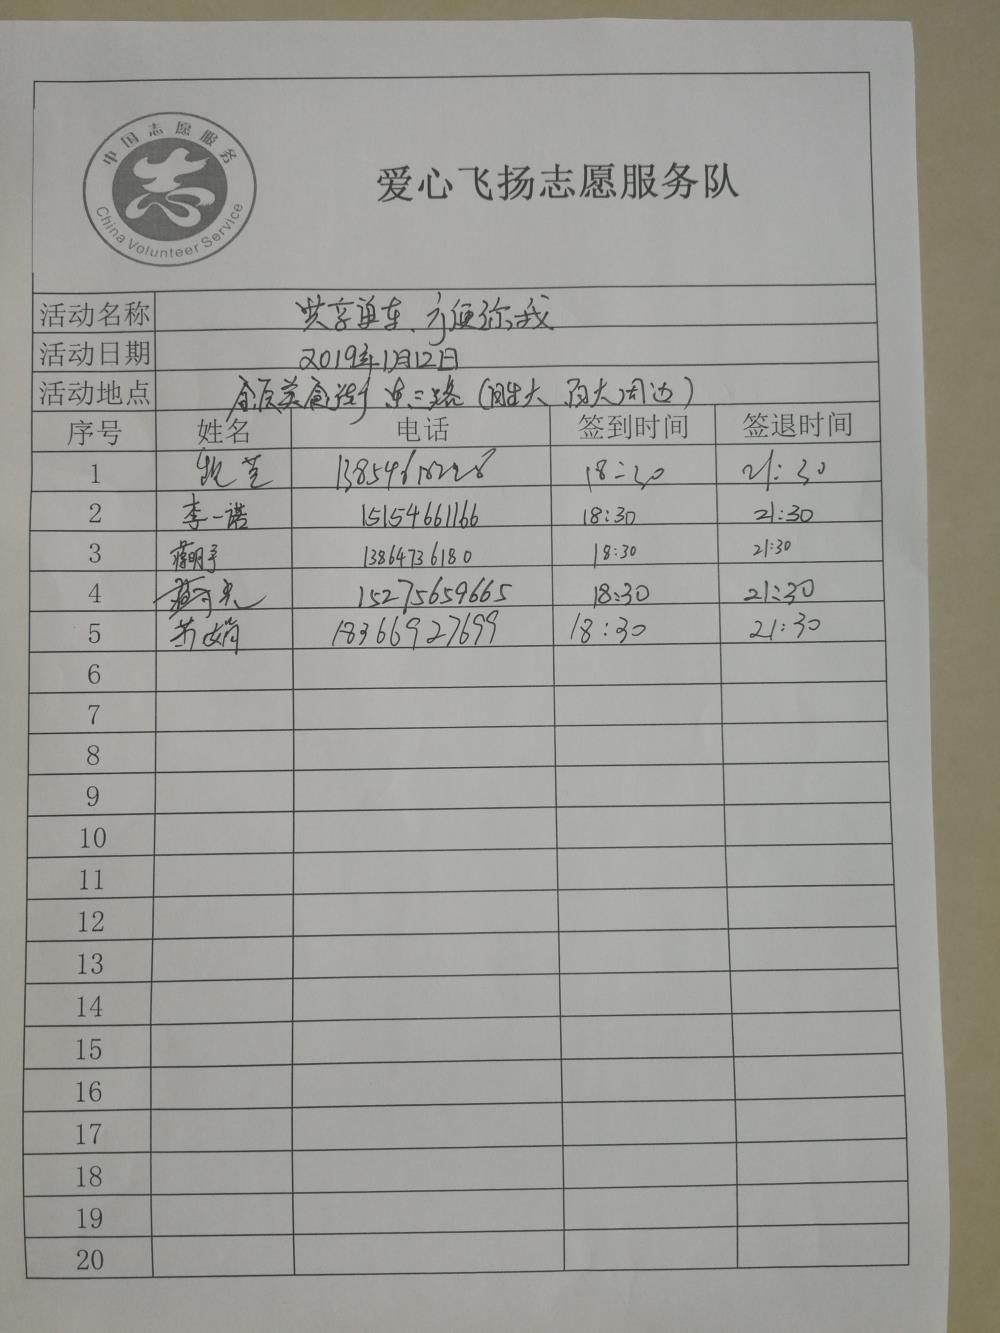 中国志愿服务
China Volunteer Service
爱心飞扬志愿服务队
活动名称 共享单车、方便你我
活动日期 2019年1月12日
活动地点 美食街 东二路(胜大 百大周边)
序号 姓名 电话 签到时间 签退时间
1 18:30 21:30
2 李一诺 15154661166 18:30 21:30
3 13864736180 18:30 21:30
4 15275659665 18:30 21:30
5 18366927699 18:30 21:30
6
7
8
9
10
11
12
13
14
15
16
17
18
19
20